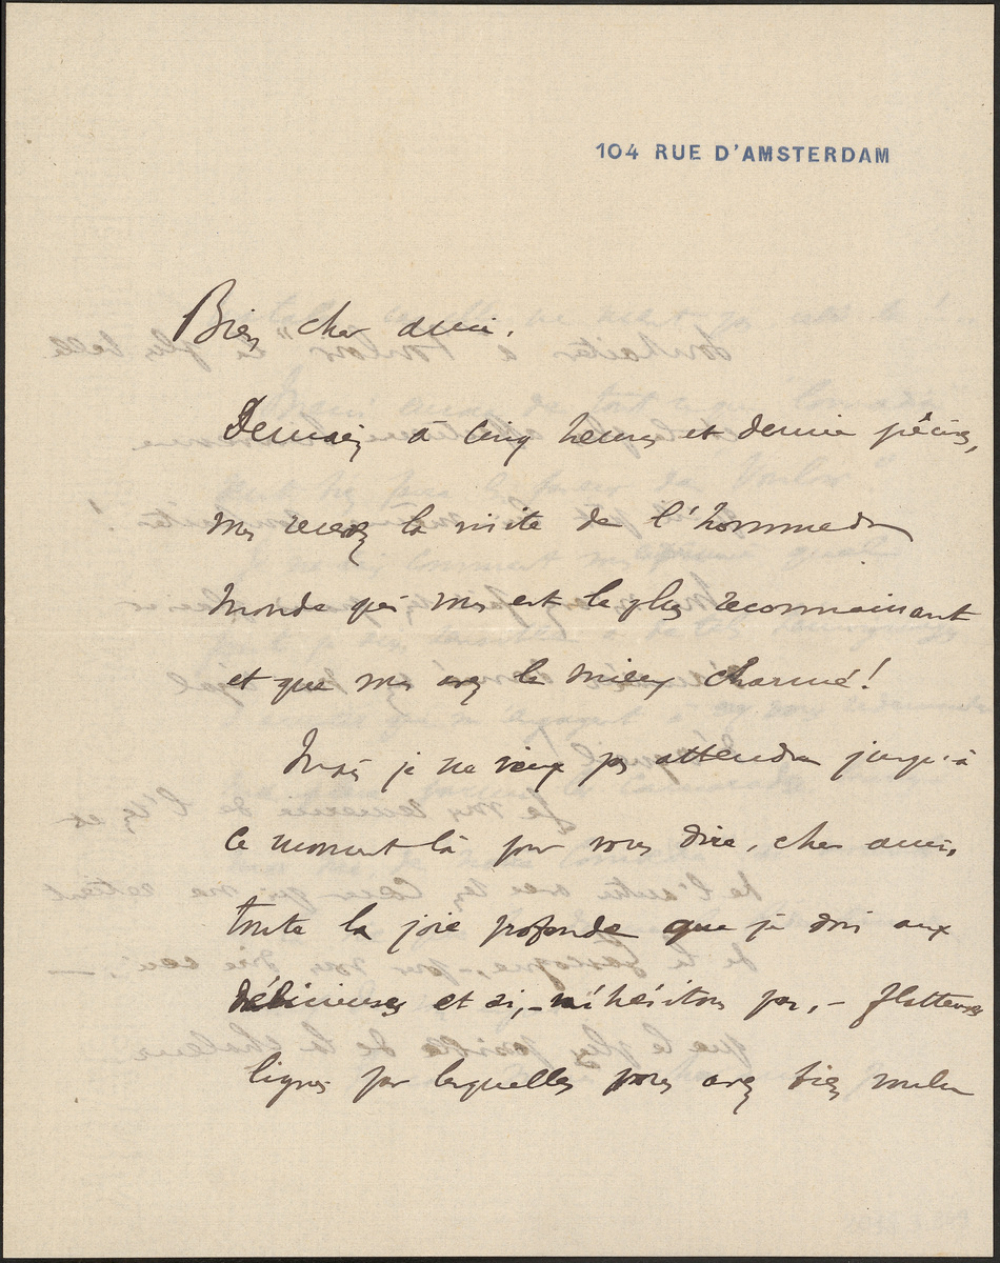 104 RUE D'AMSTERDAM
Bien cher ami.
Demain à cinq heures et demie précises,
vous recevrez la visite de l'homme du
monde qui vous est le plus reconnaissant
et que vous avez le mieux charmé!
Mais je ne veux pas attendre jusqu'à
ce moment-là pour vous dire, cher ami,
toute la joie profonde que je dois aux
délicieuses et si, - n'hésitons pas, - flatteuses
lignes par lesquelles vous avez bien voulu